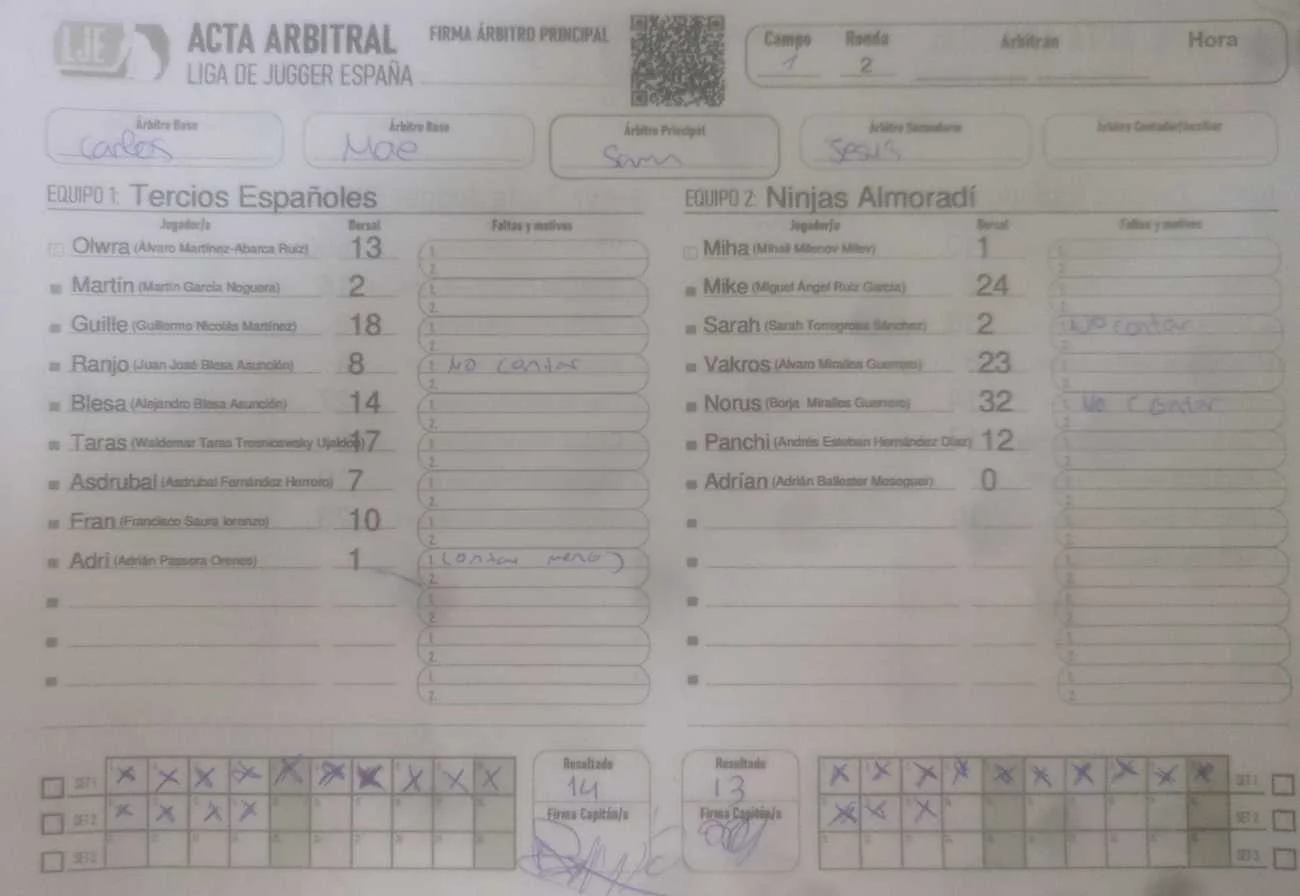 LJE
ACTA ARBITRAL
LIGA DE JUGGER ESPAÑA
FIRMA ÁRBITRO PRINCIPAL
Campo Ronda Arbitran Hora
1 2
Árbitro Base Árbitro Base Árbitro Principal Árbitro Secundario Árbitro Contador/Auxiliar
Carlos Mae Sam Jesús
EQUIPO 1: Tercios Españoles
Jugador/a Dorsal Faltas y motivos
Olwra (Álvaro Martínez-Abarca Ruiz) 13
Martín (Martín García Noguera) 2
Guille (Guillermo Nicolás Martínez) 18
Ranjo (Juan José Blesa Asunción) 8 1. NO contar
Blesa (Alejandro Blesa Asunción) 14
Taras (Waldemar Taras 17
Asdrubal (Asdrubal Fernández Herrero) 7
Fran (Francisco Saura lorenzo) 10
Adri (Adrián Passera Orenes) 1 1. (contar menos)
EQUIPO 2: Ninjas Almoradí
Jugador/a Dorsal Faltas y motivos
Miha (Mihail Milenov Milev) 1
Mike (Miguel Ángel Ruiz García) 24
Sarah (Sarah Torregrosa Sánchez) 2 1. NO contar
Vakros (Álvaro Miralles Guerrero) 23
Norus (Borja Miralles Guerrero) 32 1. No contar
Panchi (Andrés Esteban Hernández Díaz) 12
Adrían (Adrián Ballester Meseguer) 0
SET 1
SET 2
SET 3
Resultado
14
Firma Capitán/a
Resultado
13
Firma Capitán/a
SET 1
SET 2
SET 3